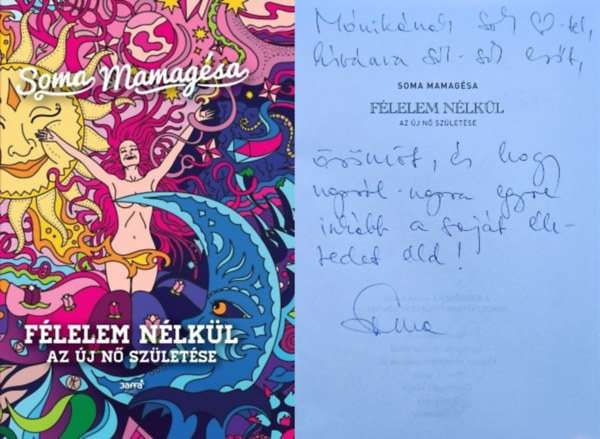 Soma Mamagésa
FÉLELEM NÉLKÜL
AZ ÚJ NŐ SZÜLETÉSE
Jaffa
Mónikának sok ♡-tel,
kívánva sok-sok erőt,
SOMA MAMAGÉSA
FÉLELEM NÉLKÜL
AZ ÚJ NŐ SZÜLETÉSE
örömöt, és hogy
napról-napra egyre
inkább a saját éle-
tedet éld!
Soma